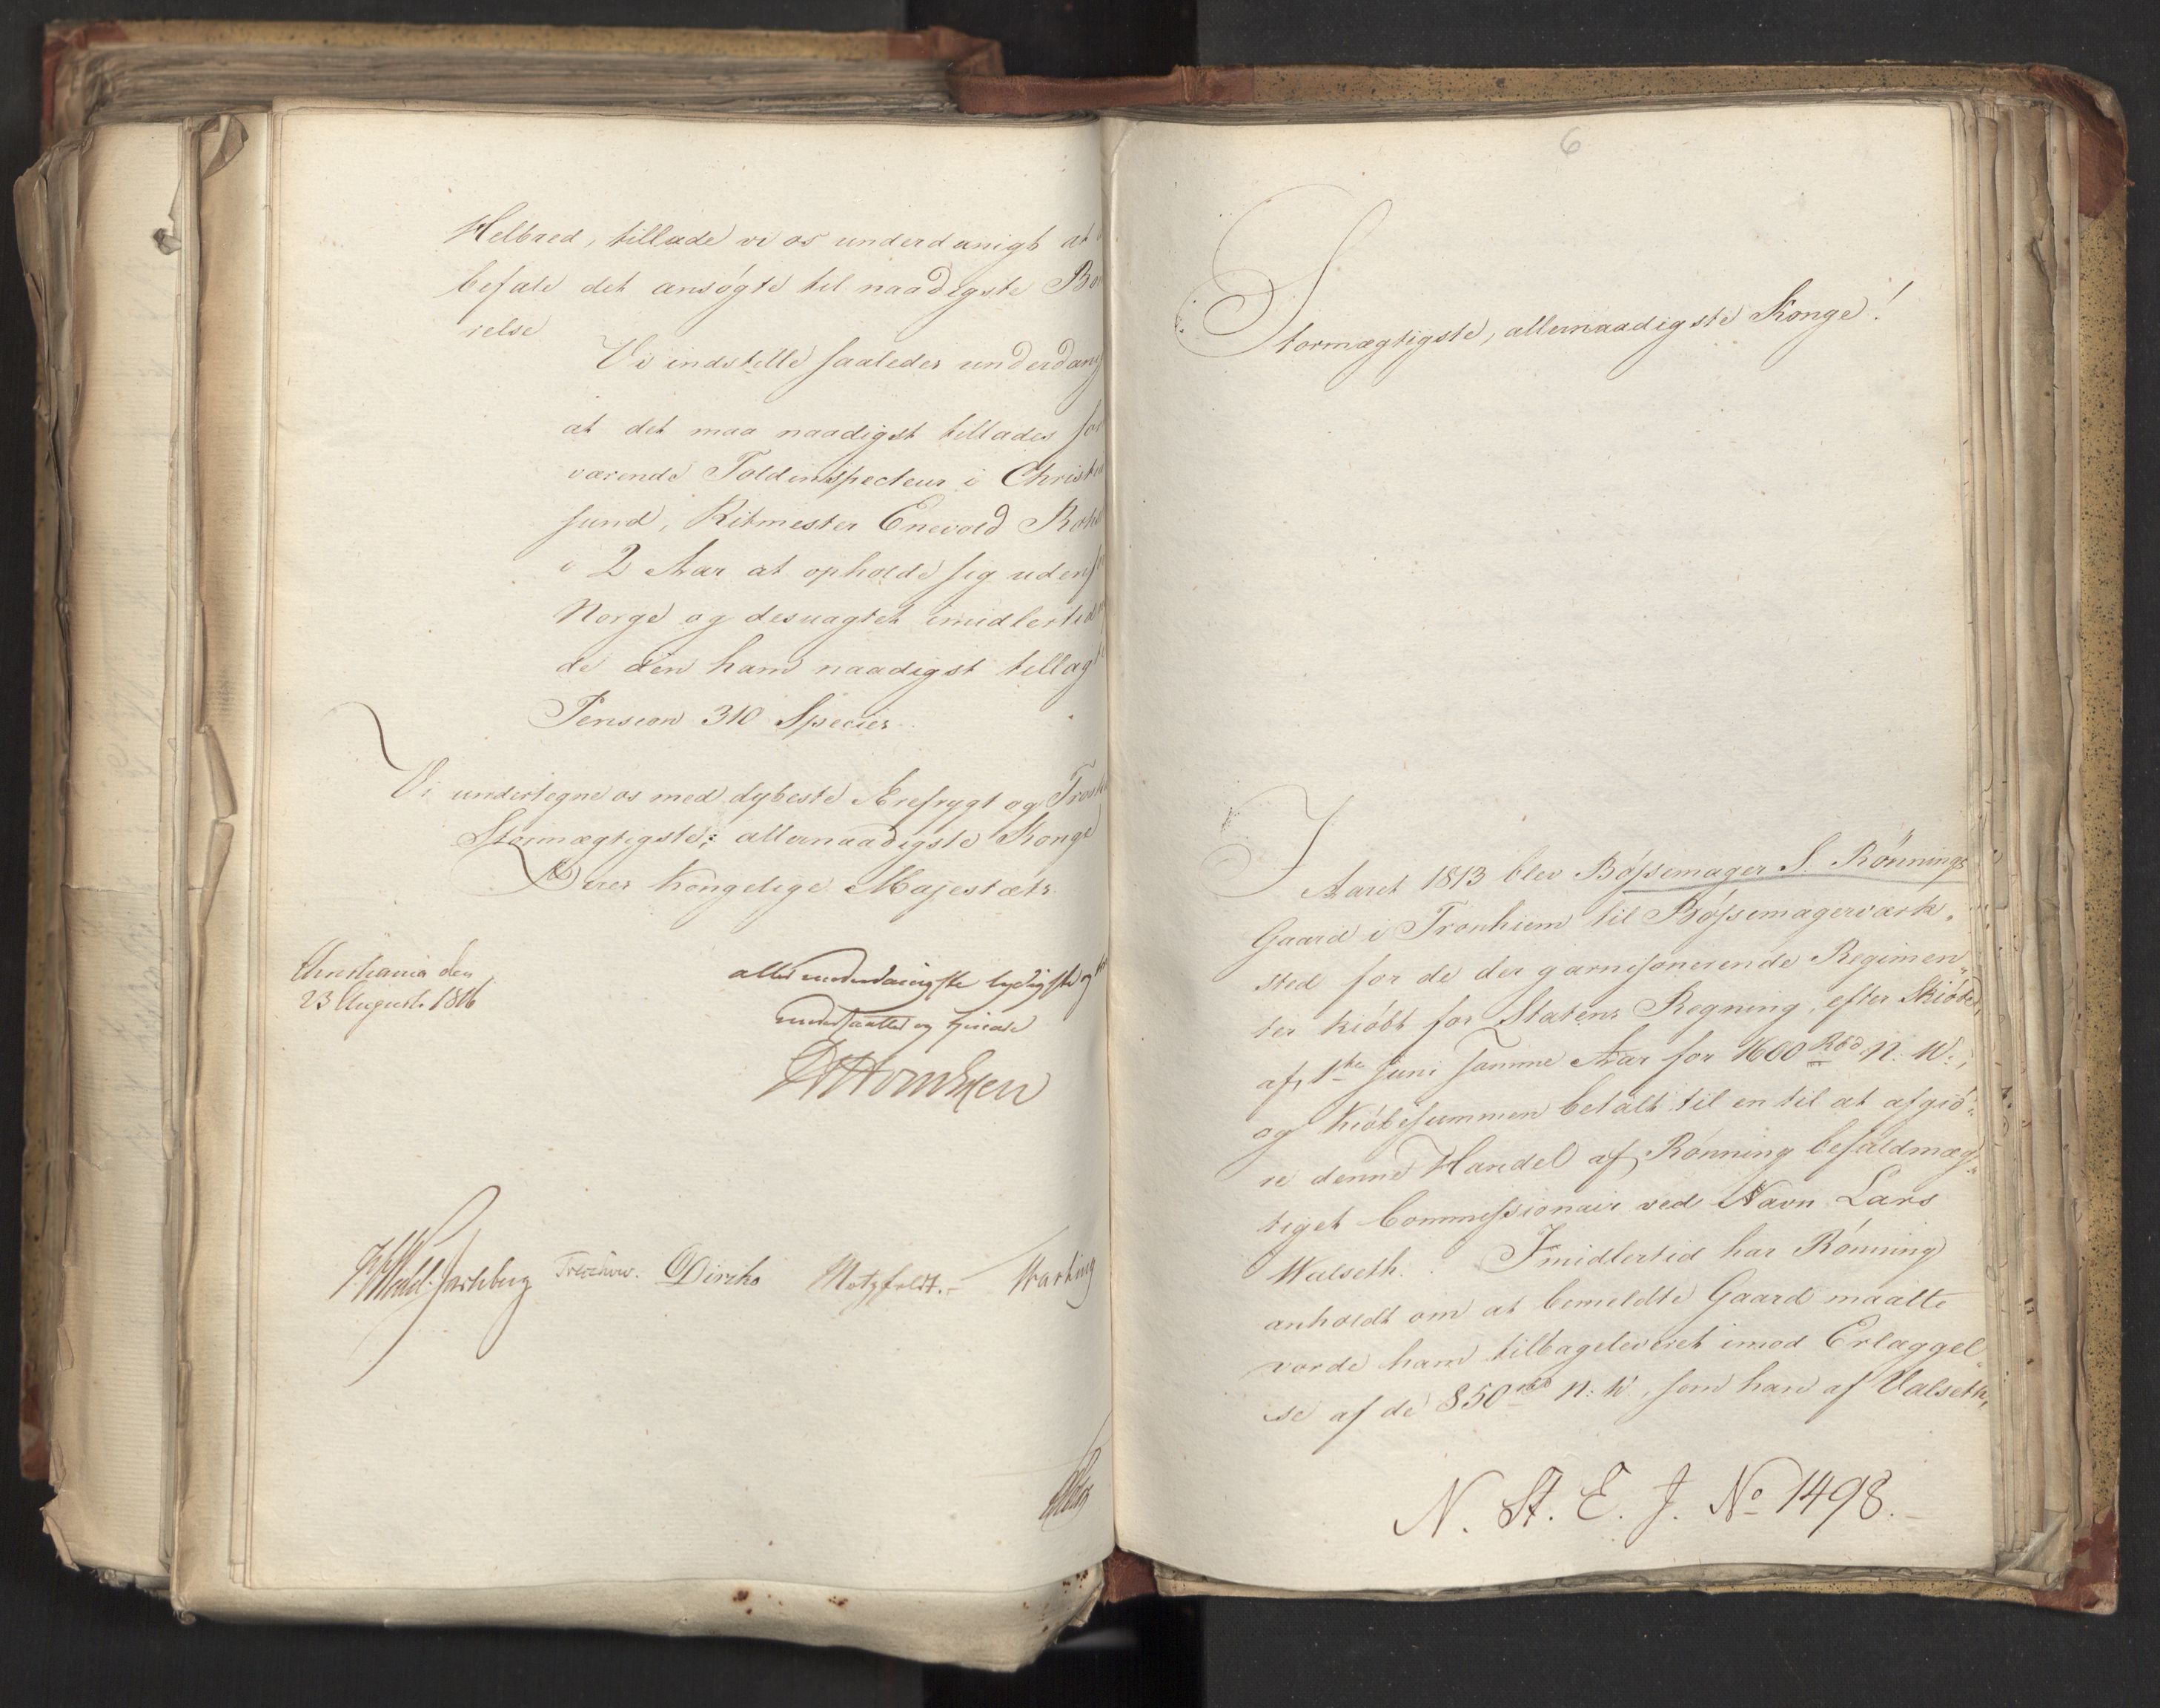 Helbred, tillade vi os underdanigst at
befale det ansøgte til naadigste Bø
relse
Vi indstille saaledes underdanig
at det maa naadigst tillades for
værende Toldinspecteur i Christia
sund, Ritmester Enevold
i 2 Aar at opholde sig udenfor
Norge og desuagtet imidlertid
de den ham naadigst tillagte
Pension 310 Species
Vi undertegne os med dybeste Ærefrygt og Troska
Stormægtigste, allernaadigste Konge
Deres Kongelige Majestæts
Christiania den
23 August 1816
allerunderdanigste lydigste og
undersaatter og tjenere
Treschow. Diriks Motzfeldt.
6
Stormægtigste, allernaadigste Konge!
I Aaret 1813 blev Bøssemager S. Rønnings
Gaard i Tronhiem til Bøssemagerværk-
sted for de der garnisonerende Regimen-
ter kiøbt for Statens Regning, efter Skiøde,
af 1ste Juni samme Aar for 1600 Rbd. N. W.,
og Kiøbesummen betalt til en til at afgiø-
re denne Handel af Rønning befuldmæg-
tiget Commissionair ved Navn Lars
Walseth. Imidlertid har Rønning
anholdt om at bemeldte Gaard maatte
vorde ham tilbageleveret imod Erlæggel-
se af de 850 rbd N. W., som han af Valseth,
N. St. E. J. No 1498.